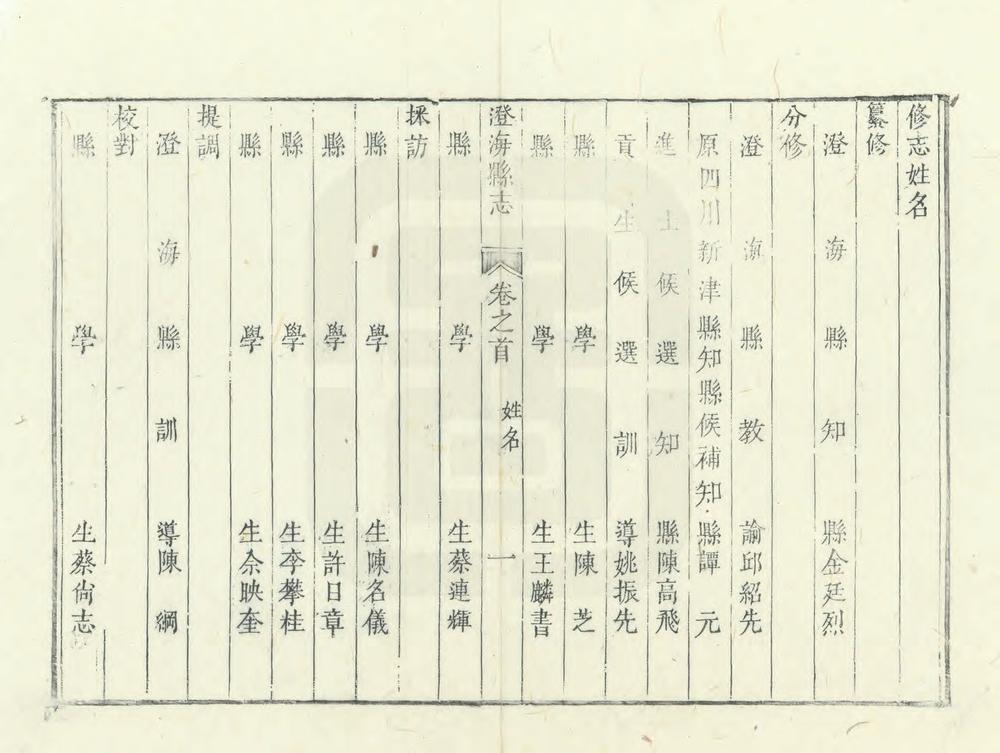 修志姓名
纂修
澄海縣知縣金廷烈
分修
澄海縣教諭邱紹先
原四川新津縣知縣候補知縣譚元
進士候選知縣陳高飛
貢生候選訓導姚振先
縣學生陳芝
縣學生王麟書
澄海縣志 卷之首 姓名 一
縣學生蔡連輝
採訪
縣學生陳名儀
縣學生許日章
縣學生李攀桂
縣學生余映奎
提調
澄海縣訓導陳綱
校對
縣學生蔡尙志